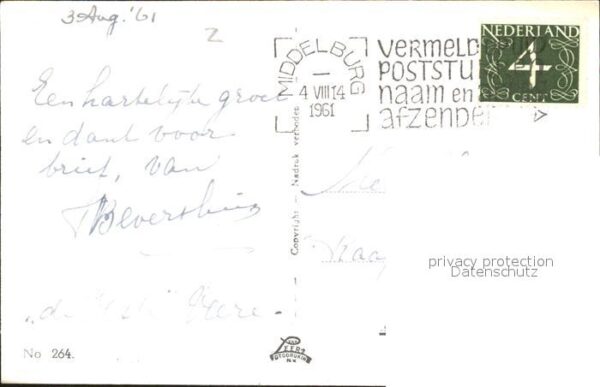 3 Aug. '61
2
MIDDELBURG
4 VIII 14
1961
VERMELD
POSTSTU
naam en
afzender
NEDERLAND
4
CENT
Een hartelijke groet
en dank voor
brief, van
Copyright — Nadruk verboden
privacy protection
Datenschutz
No 264.